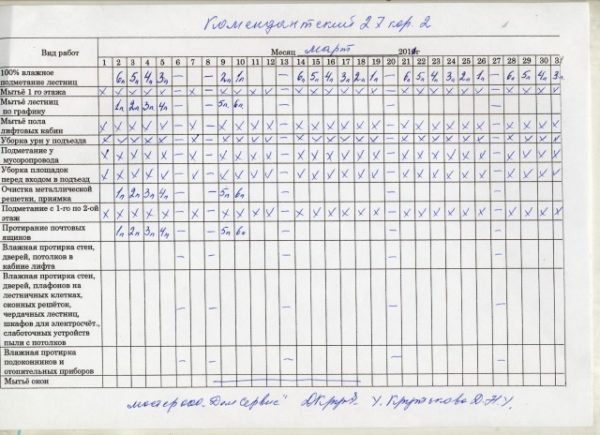 Комендантский 27 кор. 2
Вид работ
Месяц март 201 г
1 2 3 4 5 6 7 8 9 10 11 12 13 14 15 16 17 18 19 20 21 22 23 24 25 26 27 28 29 30 31
100% влажное
подметание лестниц
6п 5п 4п 3п — — 2п 1п — 6п 5п 4п 3п 2п 1п — 6п 5п 4п 3п 2п 1п — 6п 5п 4п 3п
Мытьё 1 го этажа
Мытьё лестниц
по графику
1п 2п 3п 4п — — 5п 6п — — —
Мытьё пола
лифтовых кабин
Уборка урн у подъезда
Подметание у
мусоропровода
Уборка площадок
перед входом в подъезд
Очистка металлической
решетки, приямка
1п 2п 3п 4п — — 5п 6п — — —
Подметание с 1-го по 2-ой
этаж
Протирание почтовых
ящиков
1п 2п 3п 4п — — 5п 6п — — —
Влажная протирка стен,
дверей, потолков в
кабине лифта
Влажная протирка стен,
дверей, плафонов на
лестничных клетках,
оконных решёток,
чердачных лестниц,
шкафов для электросчёт.,
слаботочных устройств
пыли с потолков
Влажная протирка
подоконников и
отопительных приборов
Мытьё окон
мастер ООО "Дом Сервис"